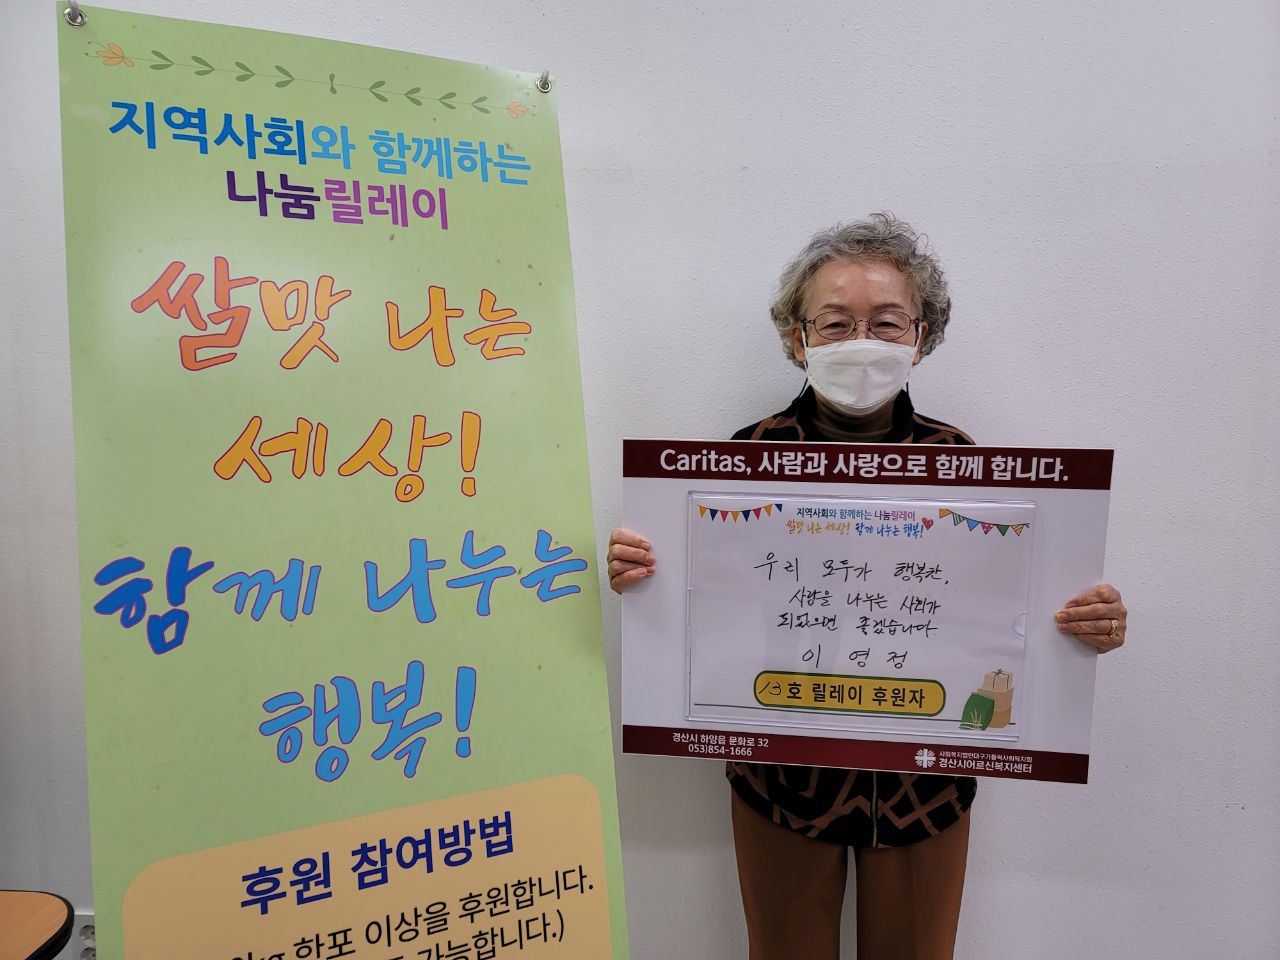 지역사회와 함께하는
나눔릴레이
쌀맛 나는
세상!
함께 나누는
행복!
후원 참여방법
한포 이상을 후원합니다.
가능합니다.)
Caritas, 사람과 사랑으로 함께 합니다.
지역사회와 함께하는 나눔릴레이
쌀맛 나는 세상! 함께 나누는 행복!
우리 모두가 행복한,
사랑을 나누는 사회가
되었으면 좋겠습니다.
이 영 정
13호 릴레이 후원자
경산시 하양읍 문화로 32
053)854-1666
사회복지법인대구가톨릭사회복지회
경산시어르신복지센터